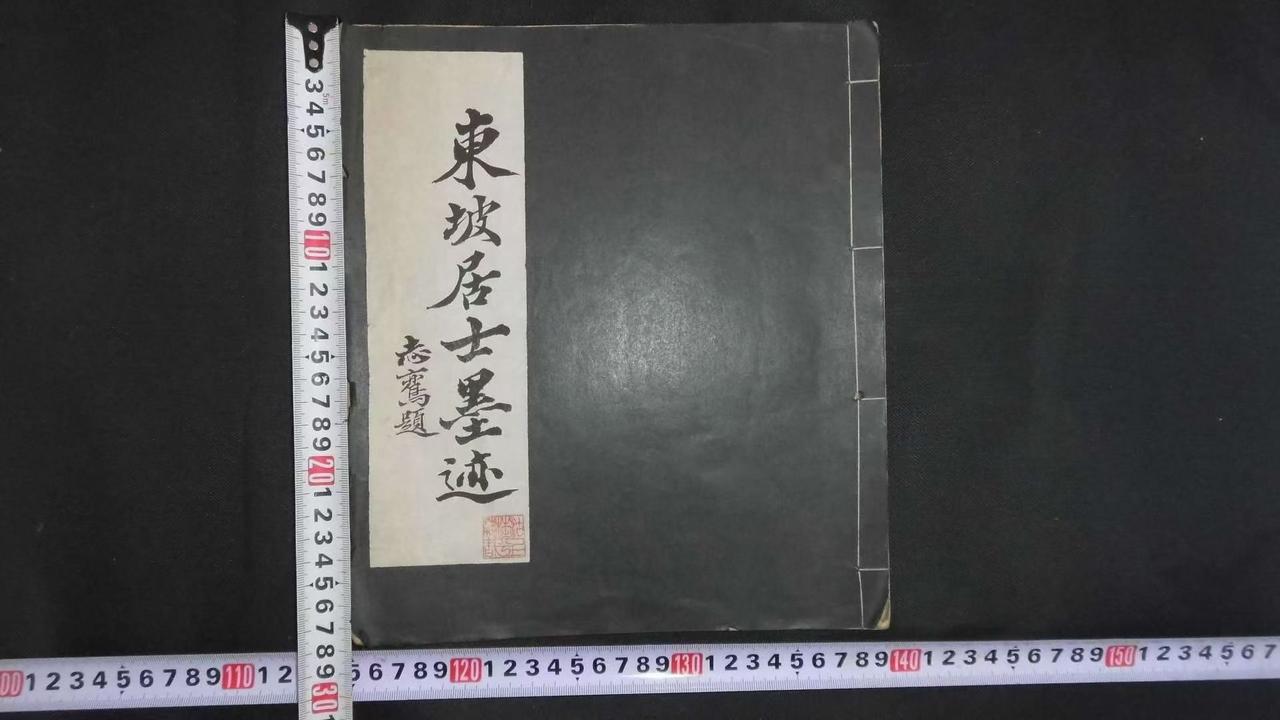 東坡居士墨迹
志騫題
3 4 5 6 7 8 9 10 1 2 3 4 5 6 7 8 9 20 1 2 3 4 5 6 7 8 9 30
5m
00 1 2 3 4 5 6 7 8 9 110 1 2 5 6 7 8 9 120 1 2 3 4 5 6 7 8 9 130 1 2 3 4 5 6 7 8 9 140 1 2 3 4 5 6 7 8 9 150 1 2 3 4 5 6 7